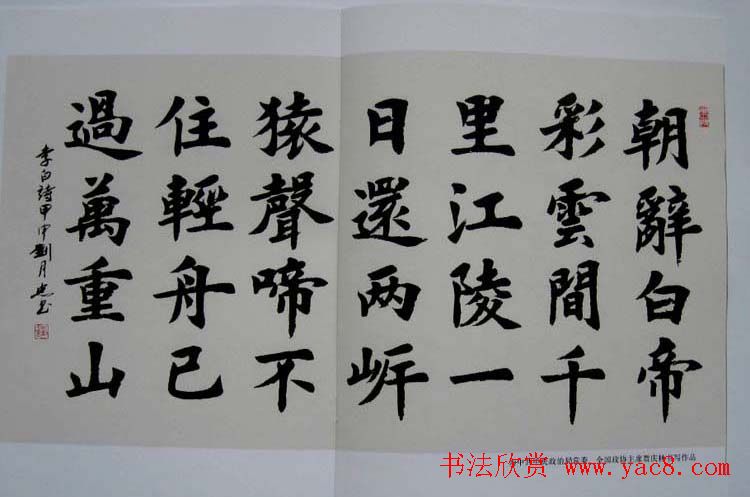 朝辭白帝
彩雲間千
里江陵一
日還两岍
猿聲啼不
住輕舟已
過萬重山
李白詩甲申劉月
全国政协主席贾庆林书写作品
书法欣赏
www.yac8.com